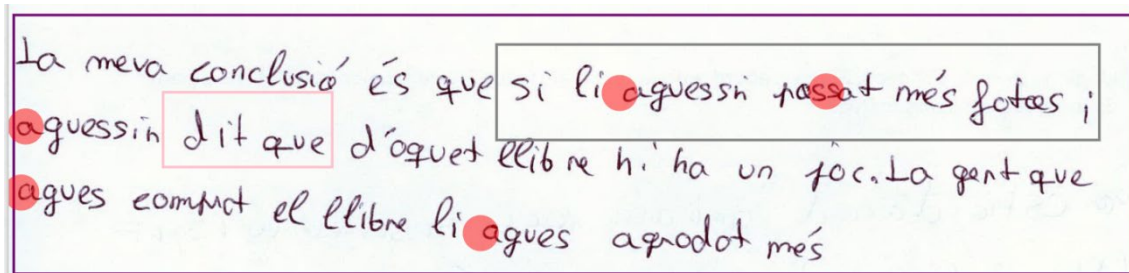 La meva conclusió és que si li aguessin passat més fotos i
aguessin dit que d'aquet llibre hi ha un joc. La gent que
agues comprat el llibre li agues agradat més